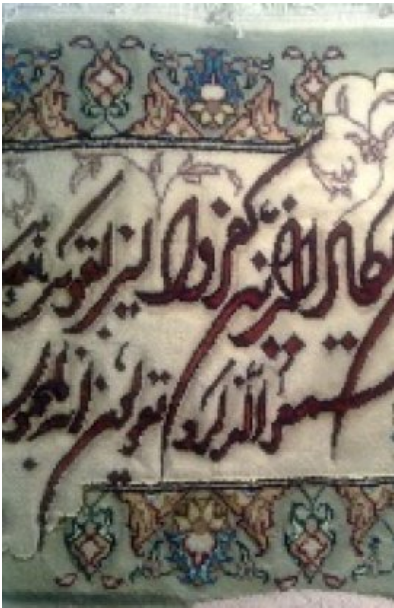 یکاد الذین کفروا لیزلقونک
سمعوا الذکر و یقولون انه لمجنون